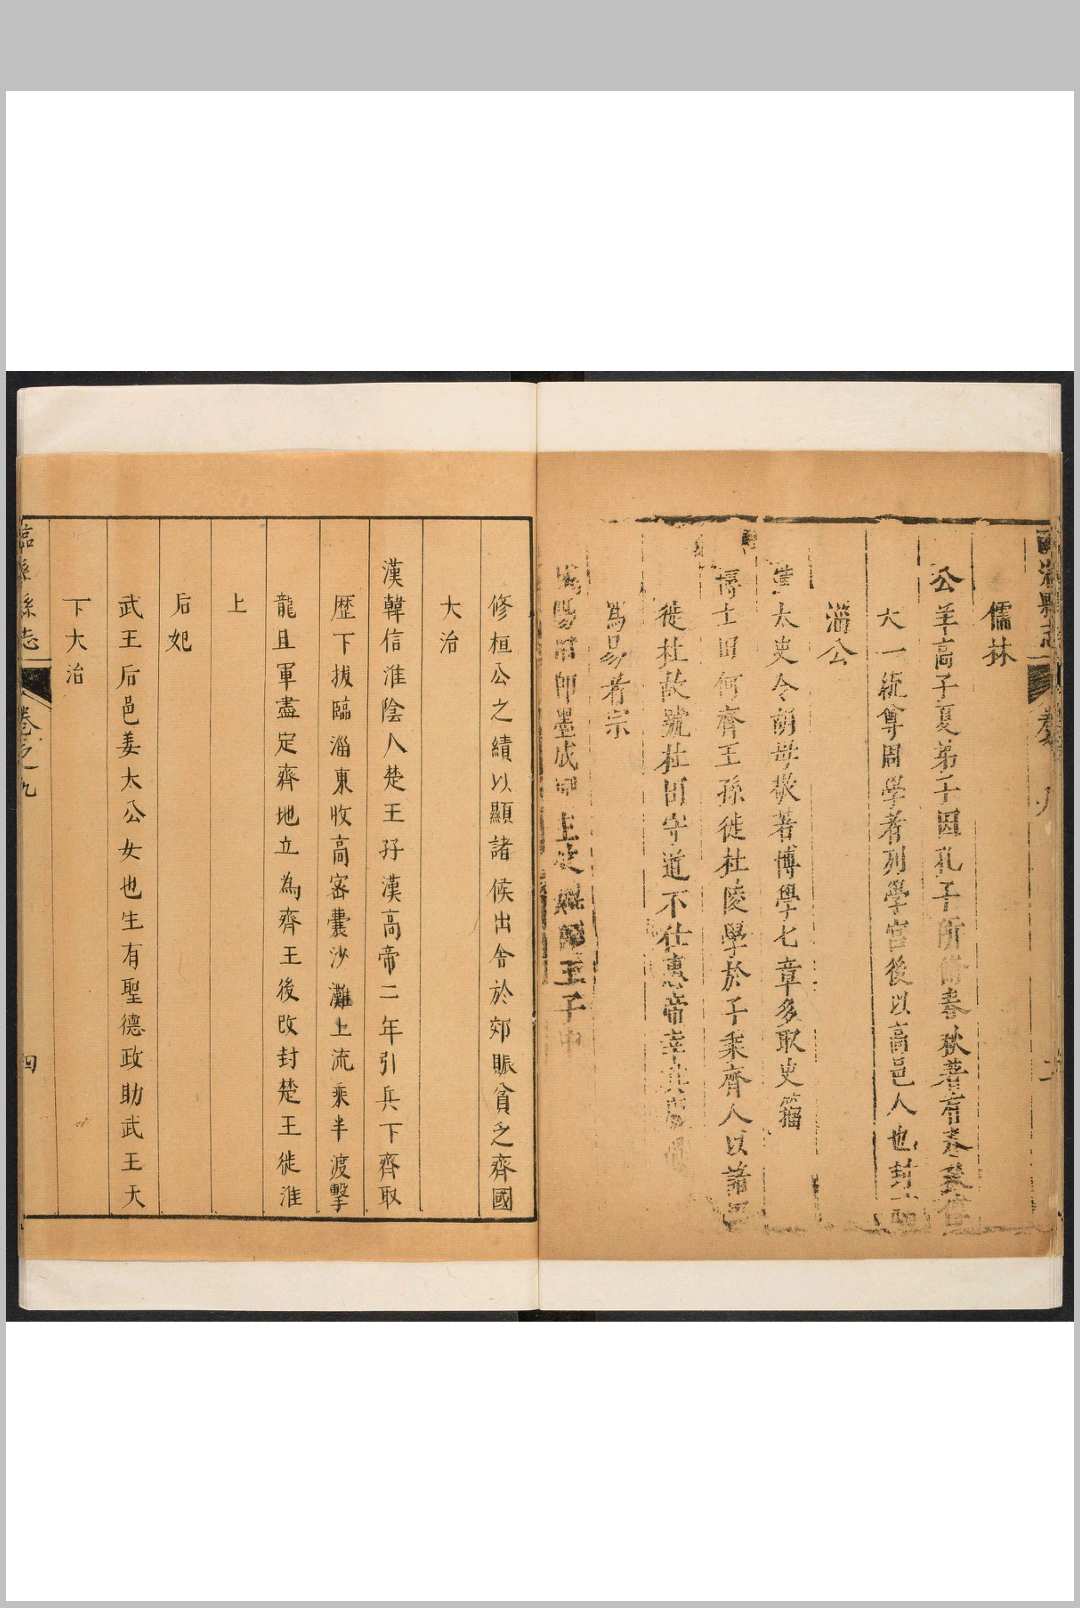 淄縣志
儒林
公羊高子夏弟子因孔子所脩春秋著春秋傳
大一統尊周學者列學宮後以高邑人也封
淄公
太史令胡毋敬著博學七章多取史籀
博士田何齊王孫徙杜陵學於子乘齊人以諸田
徙杜故號杜田守道不仕惠帝幸其廬
為易者宗
即墨成
王子中
修桓公之績以顯諸候出舍於郊賑貧乏齊國
大治
漢韓信淮陰人楚王孖漢高帝二年引兵下齊取
歷下拔臨淄東收高密囊沙灘上流乘半渡擊
龍且軍盡定齊地立為齊王後改封楚王徙淮
上
后妃
武王后邑姜太公女也生有聖德政助武王天
下大治
縣志
卷之九
四